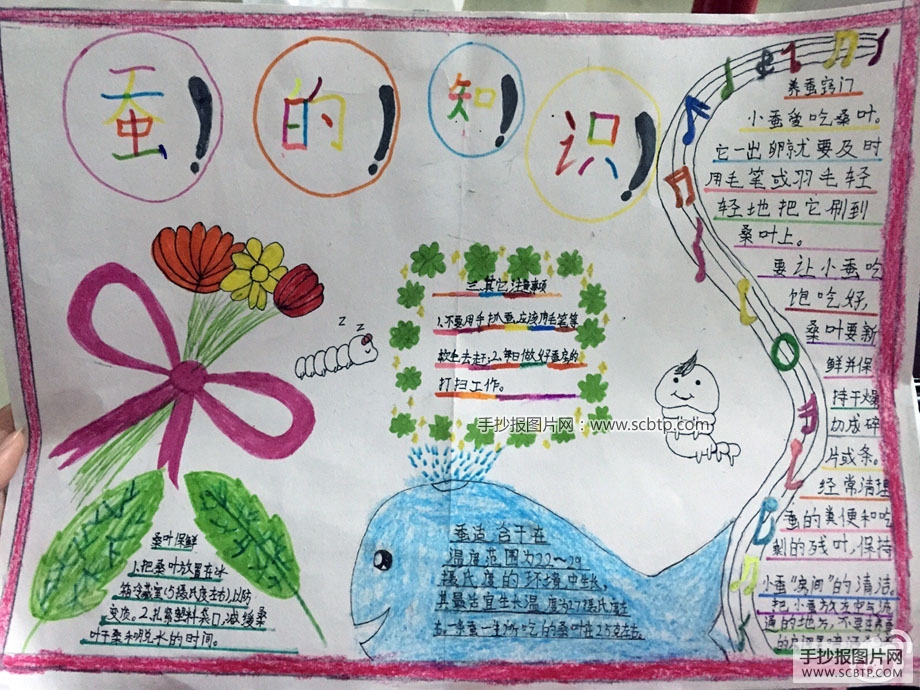 蚕的知识
养蚕窍门
小蚕爱吃桑叶。
它一出卵就要及时
用毛笔或羽毛轻
轻地把它刷到
桑叶上。
要让小蚕吃
饱吃好,
桑叶要新
鲜并保
持干燥
切成碎
片或条。
经常清理
蚕的粪便和吃
剩的残叶,保持
小蚕“房间”的清洁。
把小蚕放在空气流
通的地方,不要
三.其它注意事项
1.不要用手扒蚕,应该用毛笔等
扫走;2.每日做好蚕座的
打扫工作。
手抄报图片网:www.scbtp.com
z z
桑叶保鲜
1.把桑叶放置在冰
箱冷藏室(5摄氏度左右),以防
变质。2.扎紧塑料袋口,减缓桑
叶干柔和脱水的时间。
蚕适合于在
温度范围为22~29
摄氏度的环境中生长,
其最适宜生长温度为27摄氏度左
右。一条蚕一生所吃的桑叶在25克左右。
手抄报图片网
WWW.SCBTP.COM